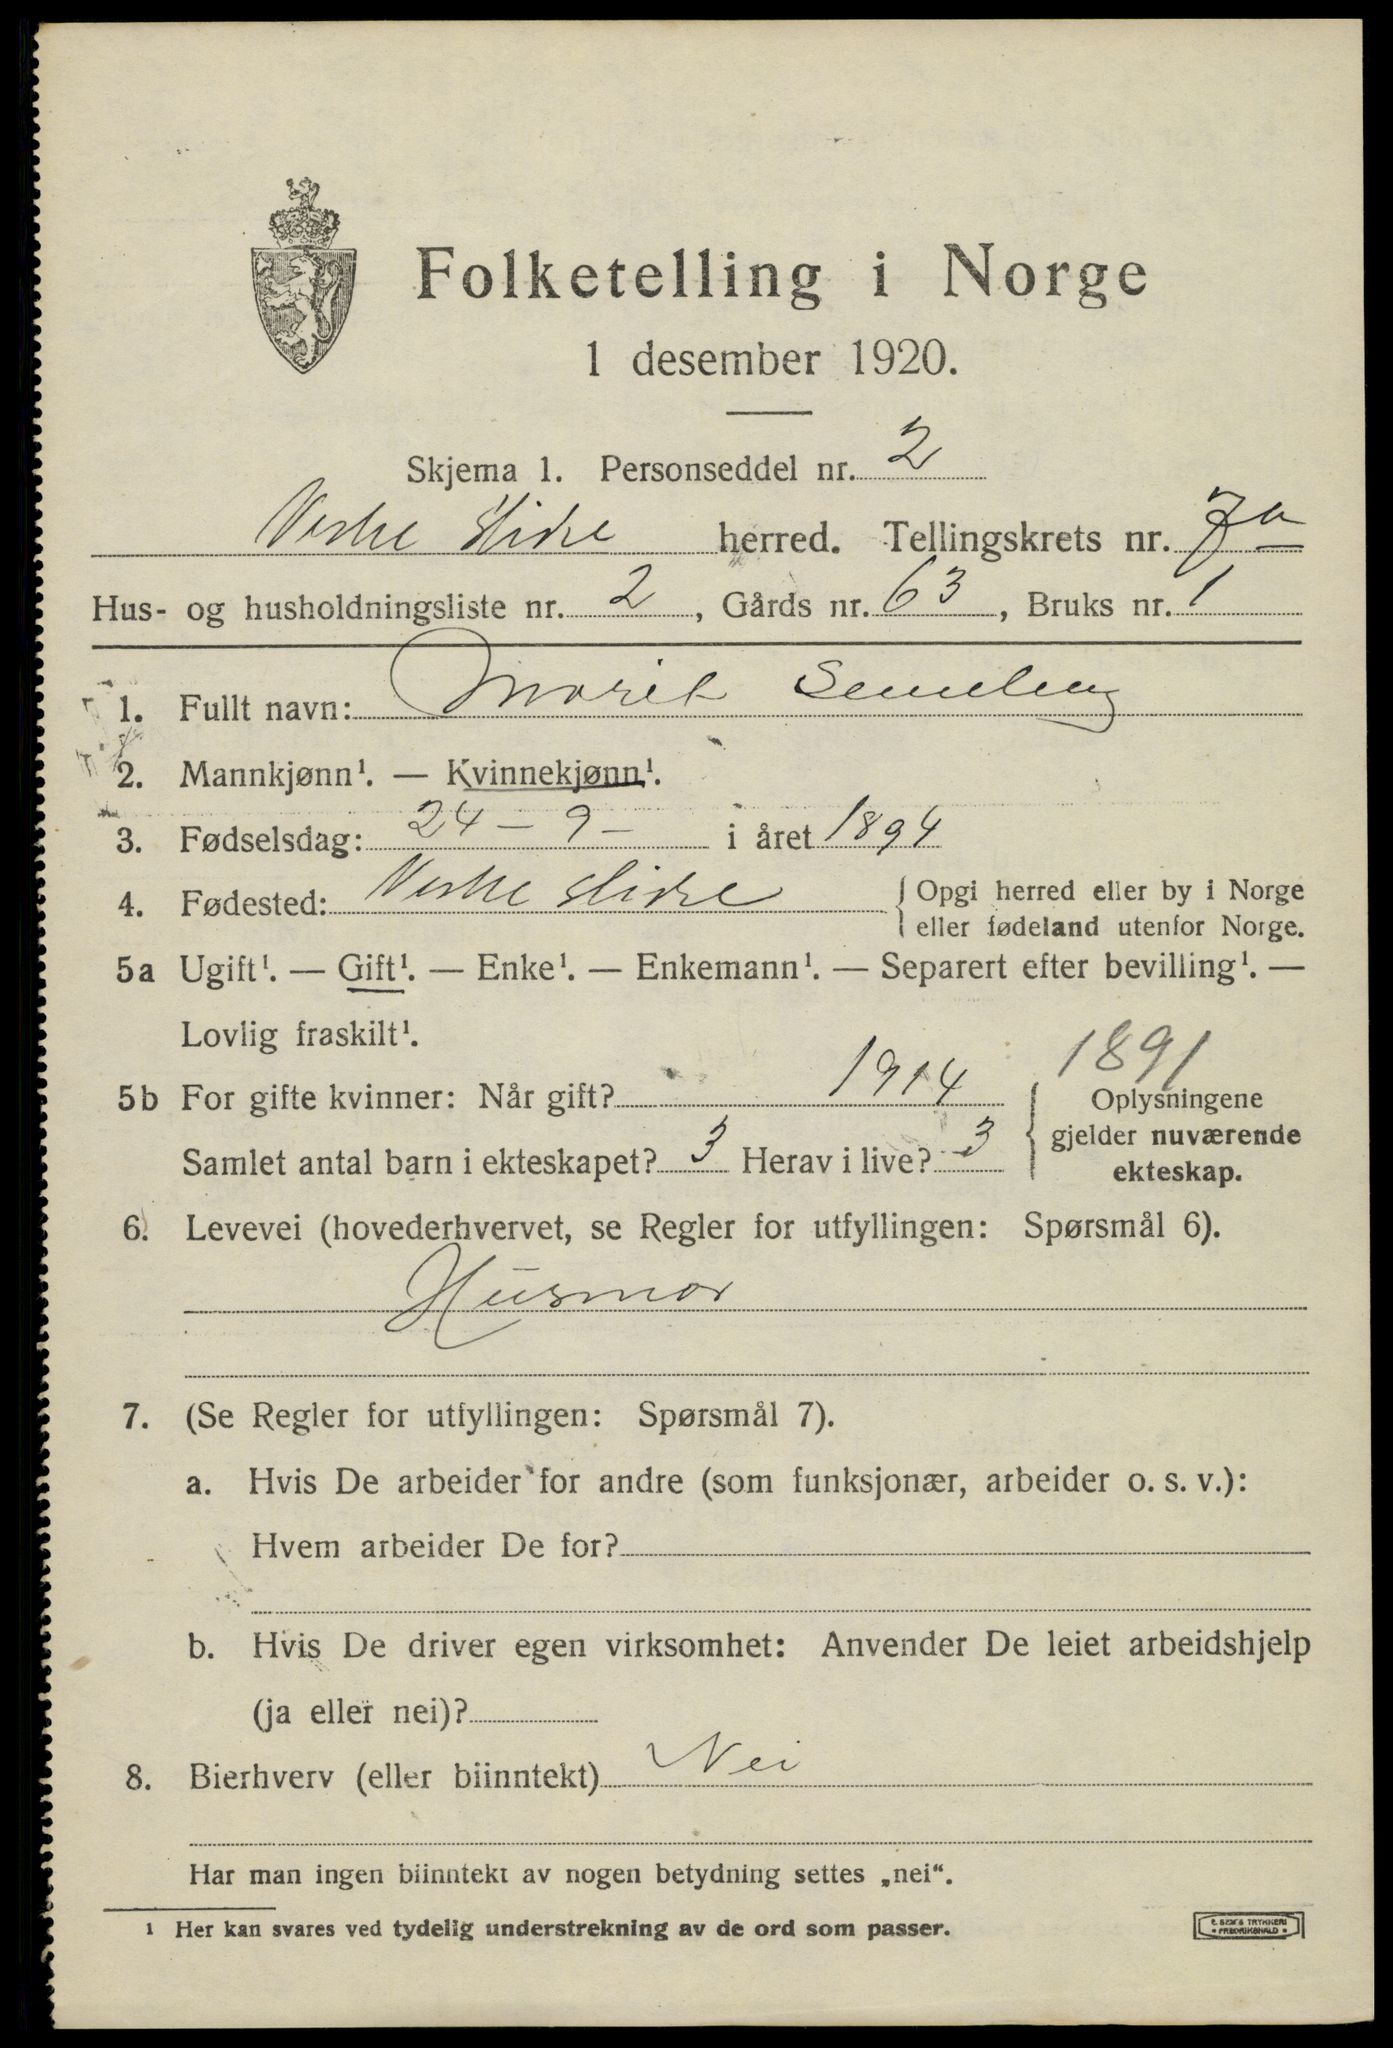 Folketelling i Norge
1 desember 1920.
Skjema 1. Personseddel nr. 2
Vestre Slidre herred. Tellingskrets nr. 7a
Hus- og husholdningsliste nr. 2, Gårds nr. 63, Bruks nr. 1
1. Fullt navn: Marit Semeleng
2. Mannkjønn¹. — Kvinnekjønn¹.
3. Fødselsdag: 24 - 9 - i året 1894
4. Fødested: Vestre Slidre { Opgi herred eller by i Norge
eller fødeland utenfor Norge.
5a Ugift¹. — Gift¹. — Enke¹. — Enkemann¹. — Separert efter bevilling¹. —
Lovlig fraskilt¹.
1891
5b For gifte kvinner: Når gift? 1914 { Oplysningene
gjelder nuværende
Samlet antal barn i ekteskapet? 3 Herav i live? 3
ekteskap.
6. Levevei (hovederhvervet, se Regler for utfyllingen: Spørsmål 6).
Husmor
7. (Se Regler for utfyllingen: Spørsmål 7).
a. Hvis De arbeider for andre (som funksjonær, arbeider o. s. v.):
Hvem arbeider De for?
b. Hvis De driver egen virksomhet: Anvender De leiet arbeidshjelp
(ja eller nei)?
8. Bierhverv (eller biinntekt) Nei
Har man ingen biinntekt av nogen betydning settes „nei“.
¹ Her kan svares ved tydelig understrekning av de ord som passer.
E. SEM'S TRYKKERI
• FREDRIKSHALD •